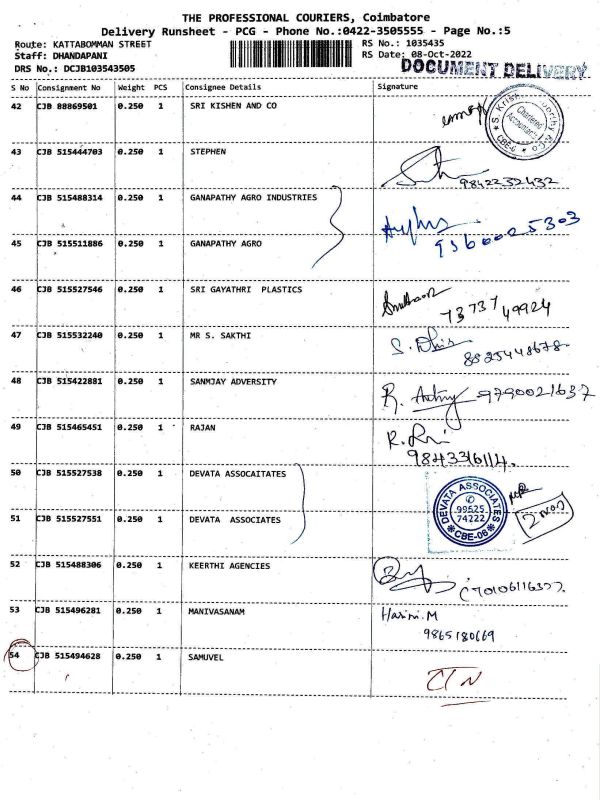 THE PROFESSIONAL COURIERS, Coimbatore
Delivery Runsheet - PCG - Phone No.:0422-3505555 - Page No.:5
Route: KATTABOMMAN STREET RS No.: 1035435
Staff: DHANDAPANI RS Date: 08-Oct-2022
DRS No.: DCJB103543505 DOCUMENT DELIVERY
S No Consignment No Weight PCS Consignee Details Signature
42 CJB 88869501 0.250 1 SRI KISHEN AND CO
Chartered Accountants
43 CJB 515444703 0.250 1 STEPHEN
9842232432
44 CJB 515488314 0.250 1 GANAPATHY AGRO INDUSTRIES
9360025303
45 CJB 515511886 0.250 1 GANAPATHY AGRO
46 CJB 515527546 0.250 1 SRI GAYATHRI PLASTICS
73737 49924
47 CJB 515532240 0.250 1 MR S. SAKTHI
8825448678
48 CJB 515422881 0.250 1 SANMJAY ADVERSITY
9790021637
49 CJB 515465451 0.250 1 RAJAN
9843316114.
50 CJB 515527538 0.250 1 DEVATA ASSOCAITATES
DEVATA ASSOCIATES
99525
74222
CBE-06
51 CJB 515527551 0.250 1 DEVATA ASSOCIATES
52 CJB 515488306 0.250 1 KEERTHI AGENCIES
53 CJB 515496281 0.250 1 MANIVASANAM Harini.M
9865180669
54 CJB 515494628 0.250 1 SAMUVEL